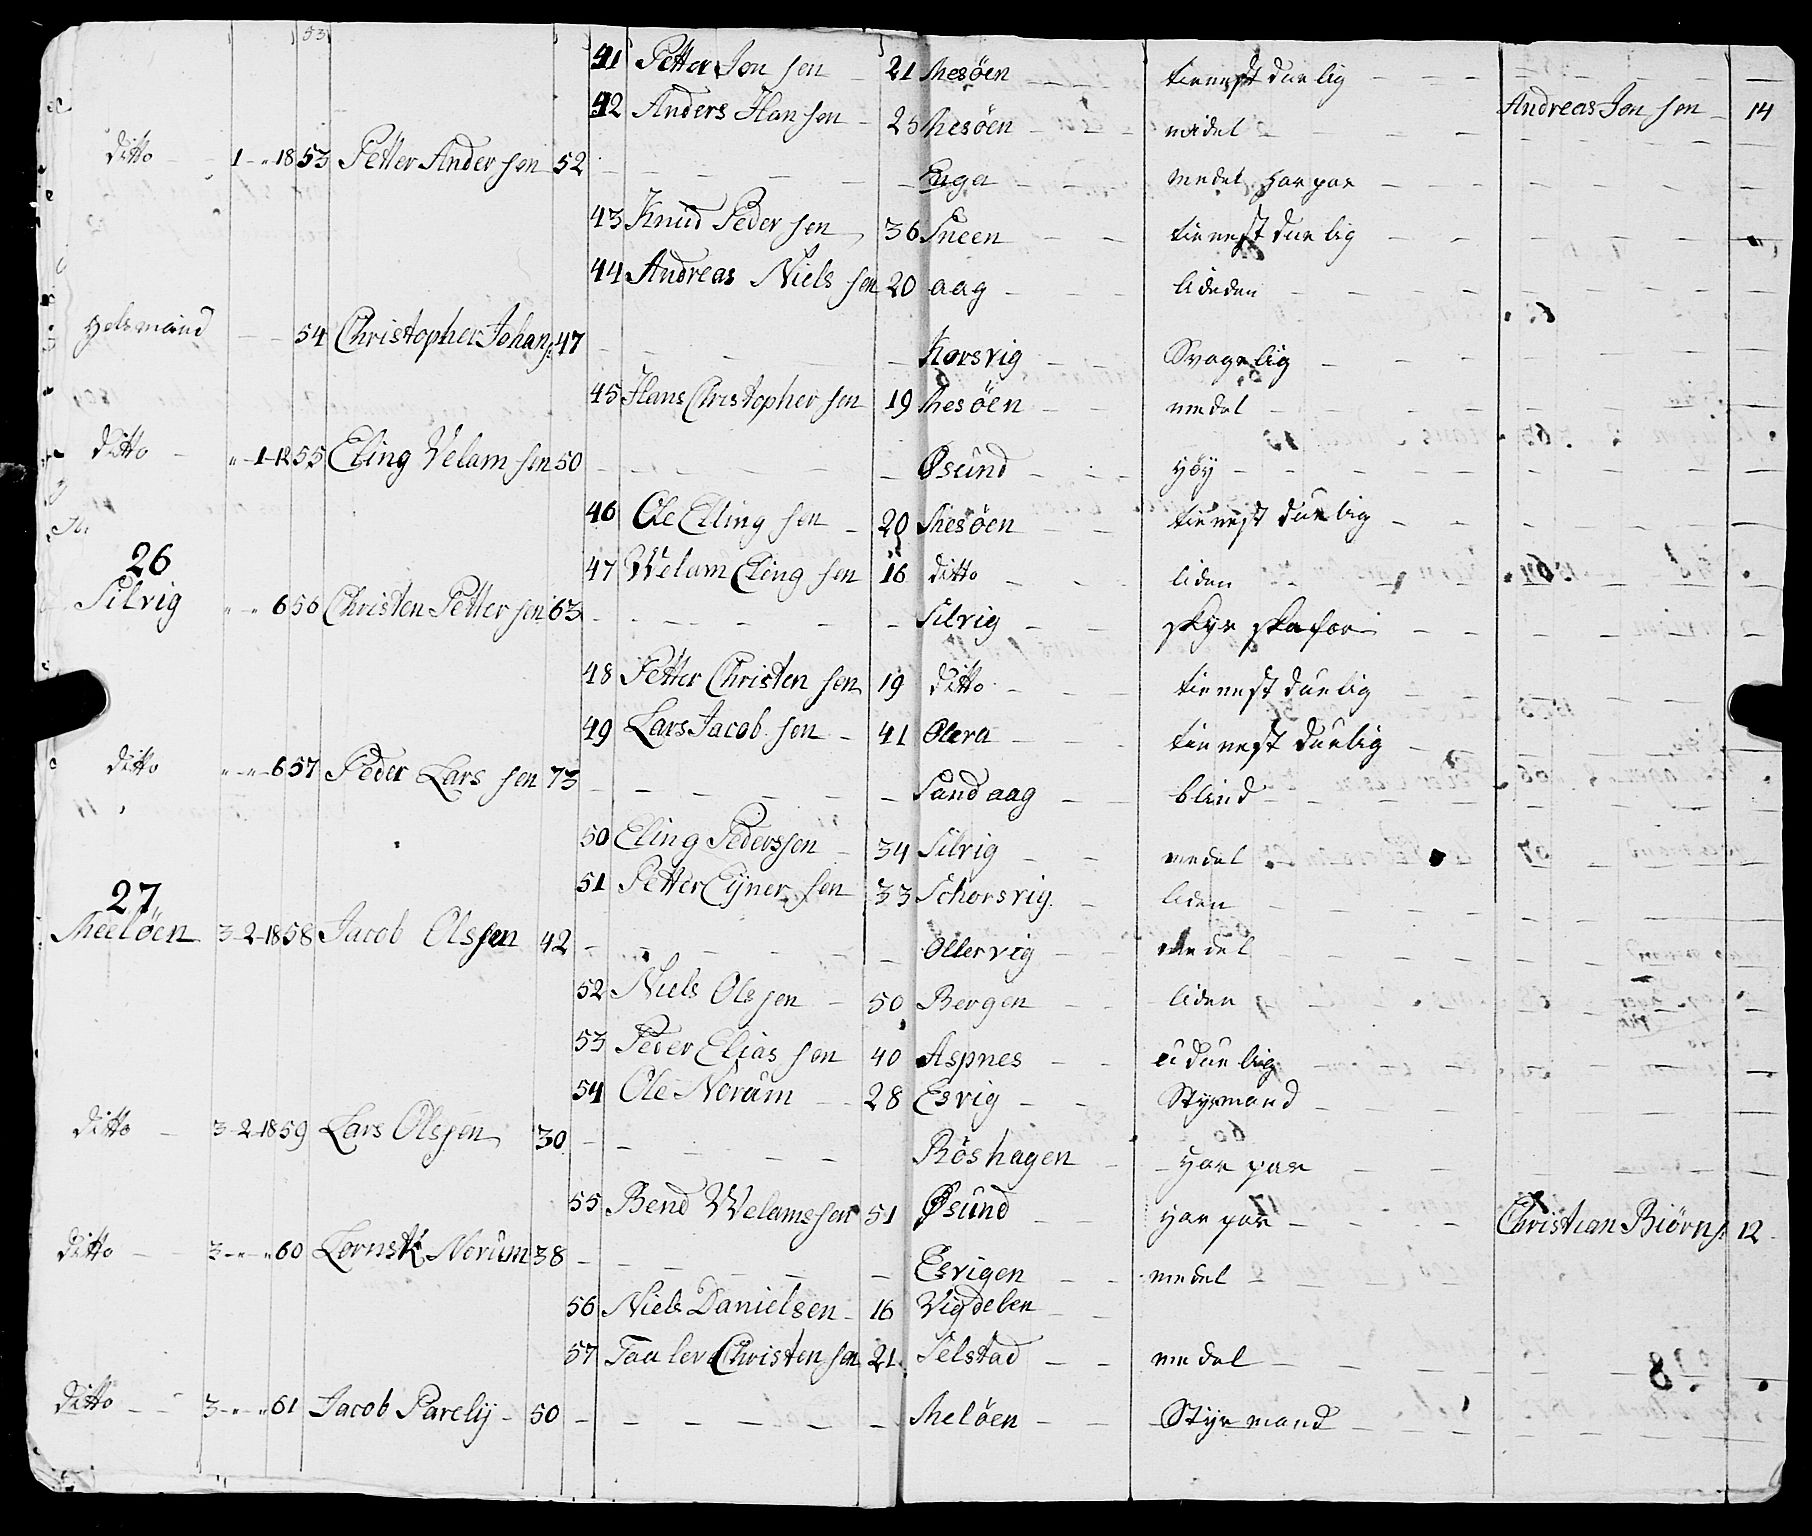 53
41 Petter Jon sen 21 Mesöen tienest due lig
42 Anders Han sen 25 Mesöen medel Andreas Jon sen 14
ditto 1 18 53 Petter Ander sen 52 Enga medel har par
43 Knud Peder sen 36 Sneen tienest due lig
44 Andreas Niels sen 20 aag lideden
Helsmand 54 Christopher Johans: 47 Korsvig Svagelig
45 Hans Christopher sen 19 Mesöen medel
ditto 1 12 55 Eling Velam sen 50 Øsund Höy
46 Ole Elling sen 20 Mesöen tienest due lig
26
47 Welam Eling sen 16 ditto liden
Silvig 6 56 Christen Petter sen 63 Silvig
48 Petter Christen sen 19 ditto tienest due lig
49 Lars Jacob sen 41 Olera tienest duelig
ditto 6 57 Peder Lars sen 73 Sand aag blind
50 Eling Pederssen 34 Silvig medel
51 Petter Ejner sen 33 Schorsvig liden
27
Meelöen 3 2 18 58 Jacob Olssen 42 Ollervig medel
52 Niels Olssen 50 Bergen liden
53 Peder Elias sen 40 Aspnes udue lig
54 Ole Norum 28 Esvig Styrmand
ditto 3 2 18 59 Lars Olssen 30 Röshagen Har par
55 Bend Welamssen 51 Øsund Har par Christian Biörns: 12
ditto 3 60 Lornst K Norum 38 Esvigen medel
56 Niels Danielsen 16 Vigdelen
57 Taa lev Christen sen 21 Selstad medel
ditto 3 61 Jacob Parelij 50 Melöen Styrmand